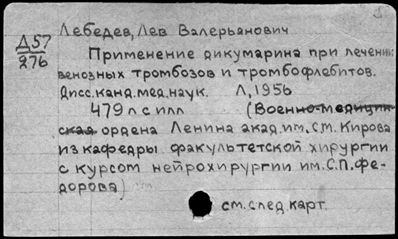 Лебедев, Лев Валерьянович
Д57
276
Применение дикумарина при лечении
венозных тромбозов и тромбофлебитов.
Дисс. канд. мед. наук. Л, 1956
479 л с илл (Военно-медицин-
ская ордена Ленина акад. им. С.М. Кирова
из кафедры факультетской хирургии
с курсом нейрохирургии им. С.П. Фе-
дорова)
см. след. карт.